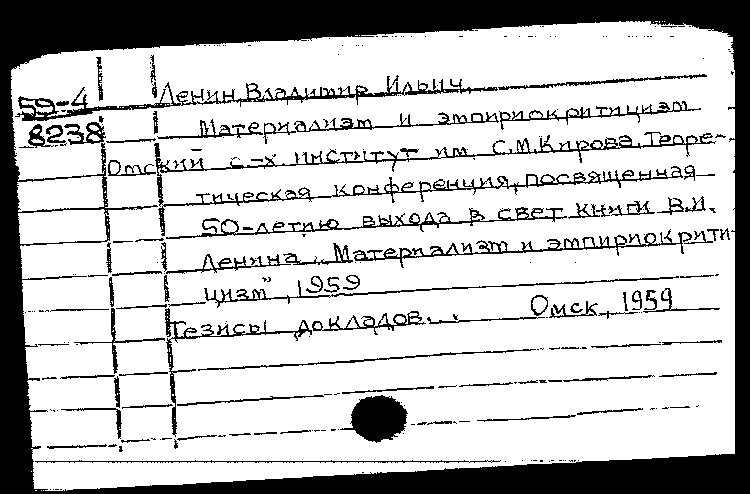 59-4
8238
Ленин, Владимир Ильич.
Материализм и эмпириокритицизм
Омский с.-х. институт им. С.М.Кирова. Теоре-
тическая конференция, посвященная
50-летию выхода в свет книги В.И.
Ленина „Материализм и эмпириокрити-
цизм", 1959
Тезисы докладов... Омск, 1959